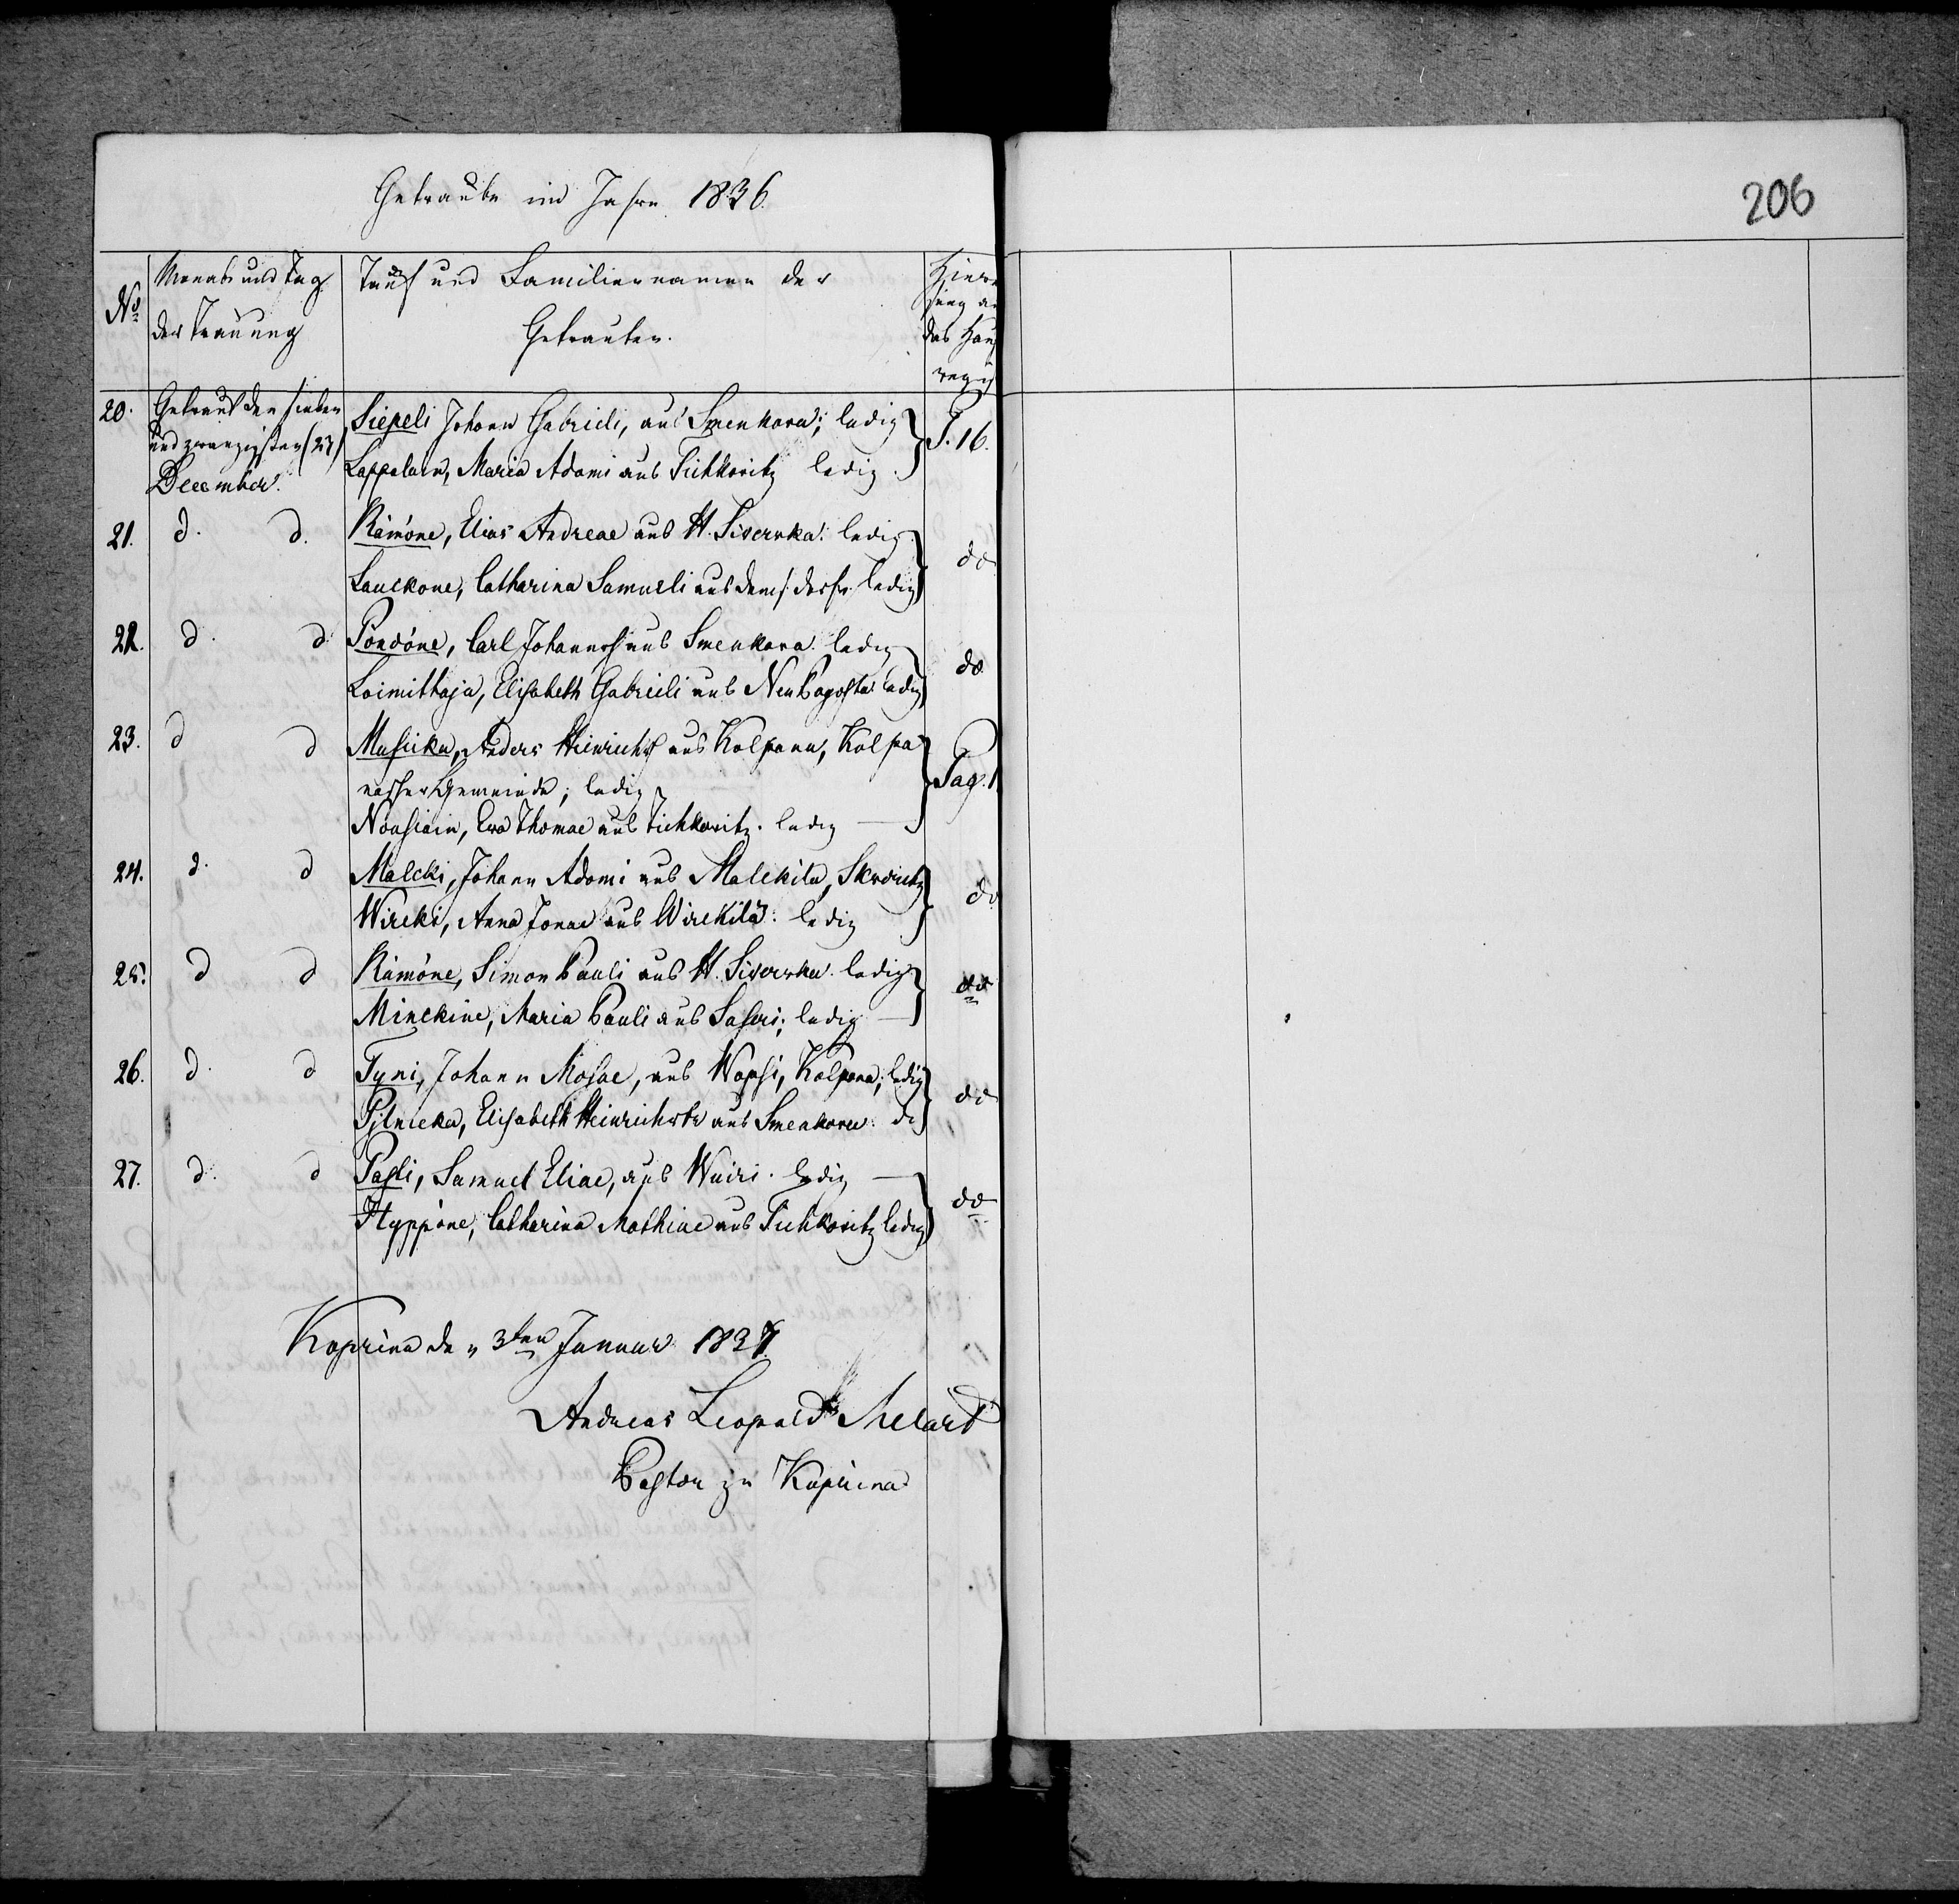 Getraute im Jahre 1836.
206
No
Monats und Tag
der Trauung
Tauf und Familiennamen der
Getrauten.
Hinw
sung a
das Haus
regis
20. Getraut den sieben
und zwanzigsten (27)
December.
Siepeli Johann Gabrieli, aus Smenkova; ledig
Lappalain, Maria Adami aus Tichkowitz ledig.
P. 16.
21. d. d. Rämöne, Elias Andreae aus H. Siverska: ledig.
Lauckone, Catharina Samueli aus dems. Dorfe. ledig
do
22. d. d Pondöne, Carl Johannes aus Smenkova. ledig
Loimittaja, Elisabeth Gabrieli aus Neu Pagosta ledig
do.
23. d d Musicka, Anders Heinrichs aus Kolpana, Kolpa
nascher Gemeinde; ledig
Nousiain, Eva Thomae aus Tichkowitz. ledig
Pag. 1
24. d. d Malcki, Johann Adami aus Malckila, Skworitz
Wircki, Anna Jonae aus Wirckilä: ledig
do
25. d d Rämöne, Simon Pauli aus H. Siverska. ledig
Minckine, Maria Pauli aus Saseri; ledig
do
26. d. d Tyni, Johann Mosae, aus Wopsi, Kolpana; ledig
Pilnicka, Elisabeth Heinrichstr aus Smenkova: do
do
27. d. d Pasli, Samuel Eliae, aus Wuiri. ledig
Hyppöne, Catharina Mathiae aus Tichkowitz ledig
do
Koprina den 3ten Januar 1837.
Andreas Leopold Melart
Pastor zu Koprina